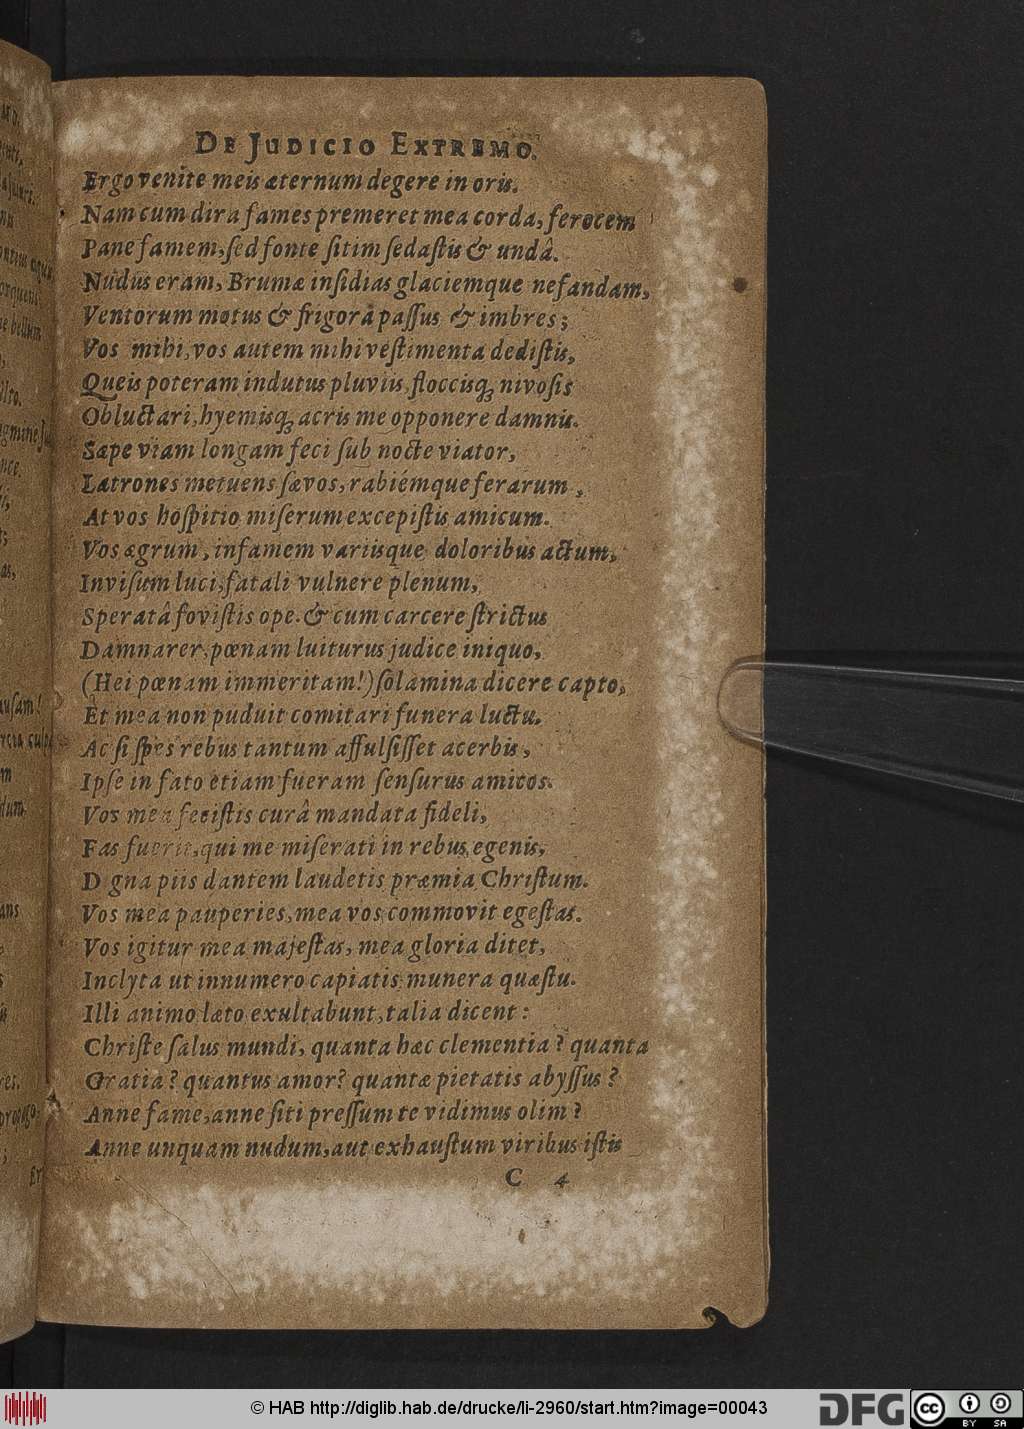 DE JUDICIO EXTREMO.
Ergo venite meis æternum degere in oris.
Nam cum dira fames premeret mea corda, ferocem
Pane famem, ſed fonte ſitim ſedaſtis & undâ.
Nudus eram, Brumæ inſidias glaciemque nefandam,
Ventorum motus & frigora paſſus & imbres;
Vos mihi, vos autem mihi veſtimenta dediſtis,
Queis poteram indutus pluviis, floccisq; nivoſis
Obluctari, hyemisq; acris me opponere damnis.
Sæpe viam longam feci ſub nocte viator,
Latrones metuens ſævos, rabiémque ferarum,
At vos hoſpitio miſerum excepiſtis amicum.
Vos ægrum, infamem variisque doloribus actum,
Inviſum luci, fatali vulnere plenum,
Speratâ foviſtis ope. & cum carcere ſtrictus
Damnarer, pœnam luiturus judice iniquo,
(Hei pœnam immeritam!) ſolamina dicere capto,
Et mea non puduit comitari funera luctu.
Ac ſi ſpes rebus tantum affulſiſſet acerbis,
Ipſe in fato etiam fueram ſenſurus amicos.
Vos mea feciſtis curâ mandata fideli,
Fas fuerit, qui me miſerati in rebus egenis,
D gna piis dantem laudetis præmia Chriſtum.
Vos mea pauperies, mea vos commovit egeſtas.
Vos igitur mea majeſtas, mea gloria ditet,
Inclyta ut innumero capiatis munera quæſtu.
Illi animo læto exultabunt, talia dicent:
Chriſte ſalus mundi, quanta hæc clementia? quanta
Gratia? quantus amor? quantæ pietatis abyſſus?
Anne fame, anne ſiti preſſum te vidimus olim?
Anne unquam nudum, aut exhauſtum viribus iſtis
C 4
© HAB http://diglib.hab.de/drucke/li-2960/start.htm?image=00043
DFG
cc
BY SA